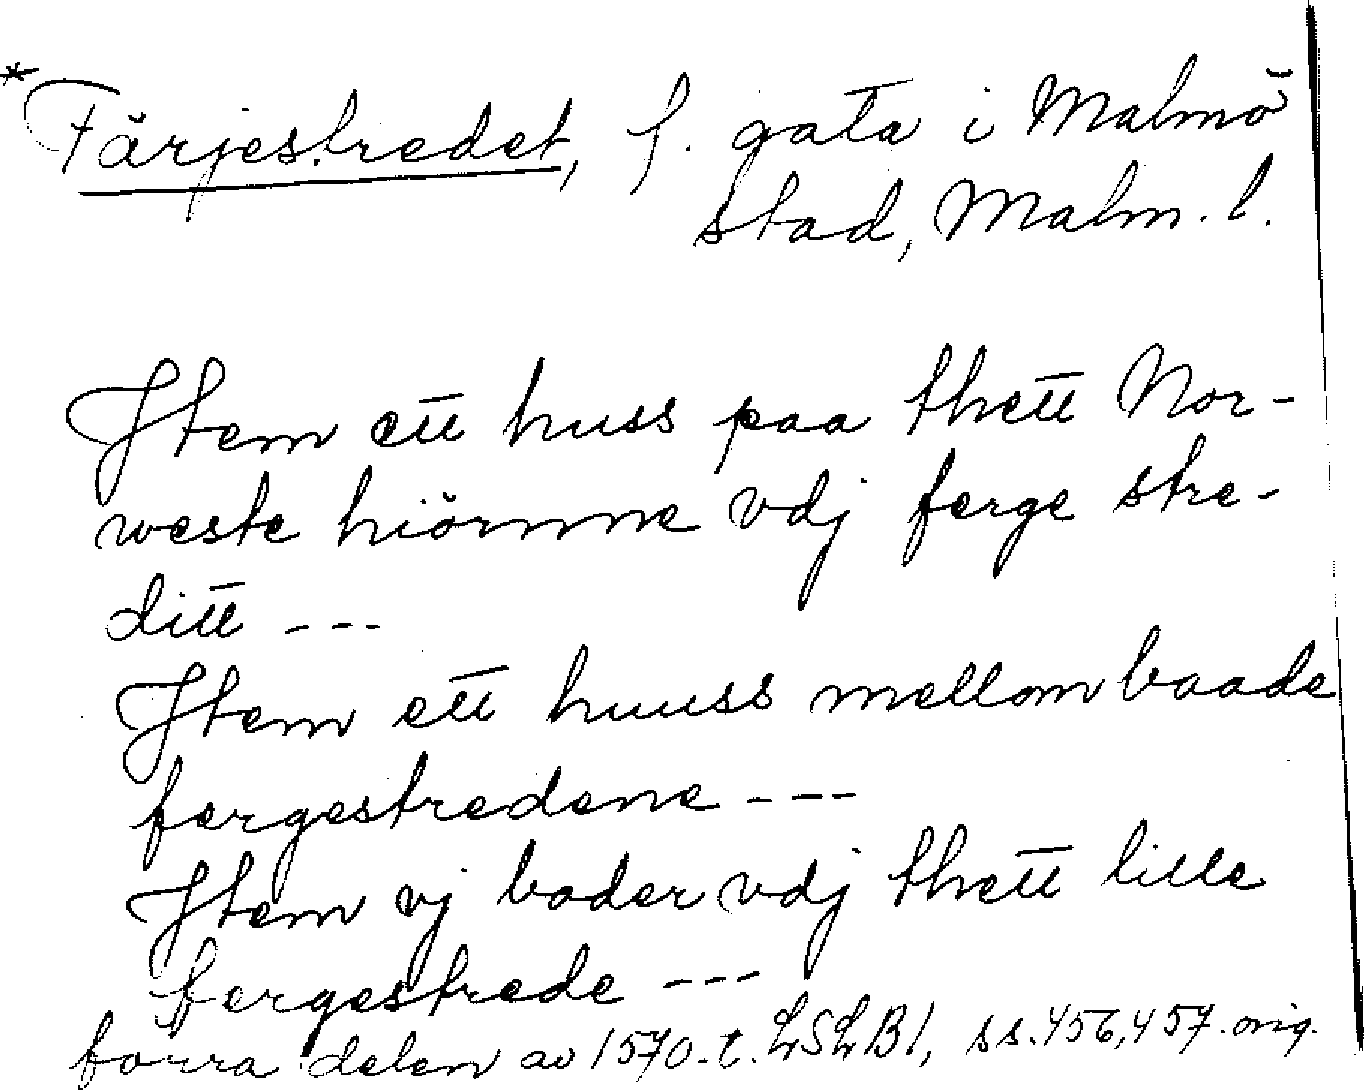 *Färjestredet, f. gata i Malmö
stad, Malm. l.
Jtem ett huss paa thett Nor-
weste hiörnne vdj ferge stre-
ditt ---
Jtem ett huuss mellom baade
fergestredene ---
Jtem vj boder vdj thett lille
fergestrede ---
förra delen av 1570-t. LSLB1, ss. 456, 457. orig.